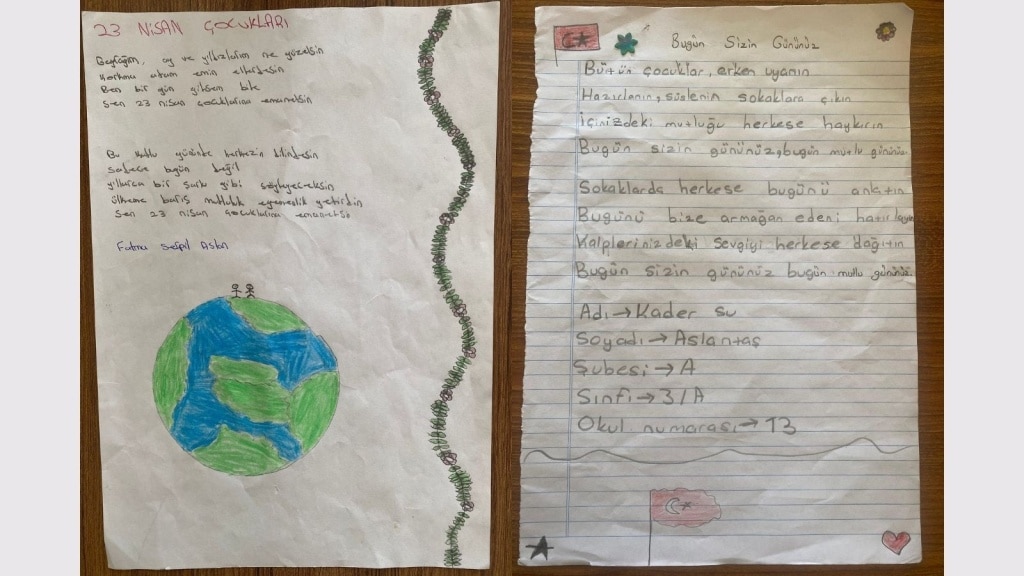 23 NİSAN ÇOCUKLARI
Bayrağım, ay ve yıldızların ne güzelsin
Korkma atam emin ellerdesin
Ben bir gün gitsem bile
Sen 23 nisan çocuklarına emanetsin
Bu kutlu gününde herkezin dilindesin
Sadece bugün değil
yıllarca bir şarkı gibi söyleyeceksin
ülkeme barış mutluluk egemenlik getirdin
Sen 23 nisan çocuklarına emanetsin
Fatma Aslan
Bugün Sizin Gününüz
Bütün çocuklar, erken uyanın
Hazırlanın, süslenin sokaklara çıkın
İçinizdeki mutluğu herkese haykırın
Bugün sizin gününüz, bugün mutlu gününüz
Sokaklarda herkese bugünü anlatın
Bugünü bize armağan edeni hatırlayın
Kalplerinizdeki sevgiyi herkese dağıtın
Bugün sizin gününüz bugün mutlu gününüz
Adı→Kader su
Soyadı→Aslantaş
Şubesi→A
Sınfı→3/A
Okul numarası→13